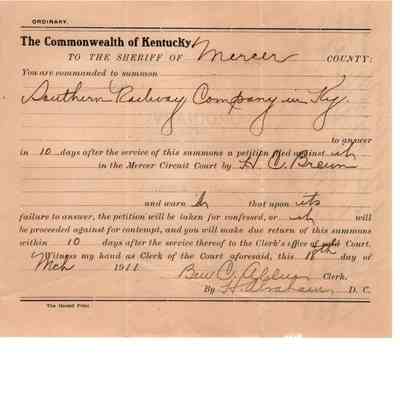 ORDINARY.
The Commonwealth of Kentucky,
TO THE SHERIFF OF Mercer COUNTY:
You are commanded to summon
Southern Railway Company in Ky.
to answer
in 10 days after the service of this summons a petition filed against it
in the Mercer Circuit Court by H. C. Brown
and warn it that upon its
failure to answer, the petition will be taken for confessed, or it will
be proceeded against for contempt, and you will make due return of this summons
within 10 days after the service thereof to the Clerk's office of said Court.
Witness my hand as Clerk of the Court aforesaid, this 18th day of
Mch 1911
Ben C. Clerk.
By D. C.
The Herald Print.